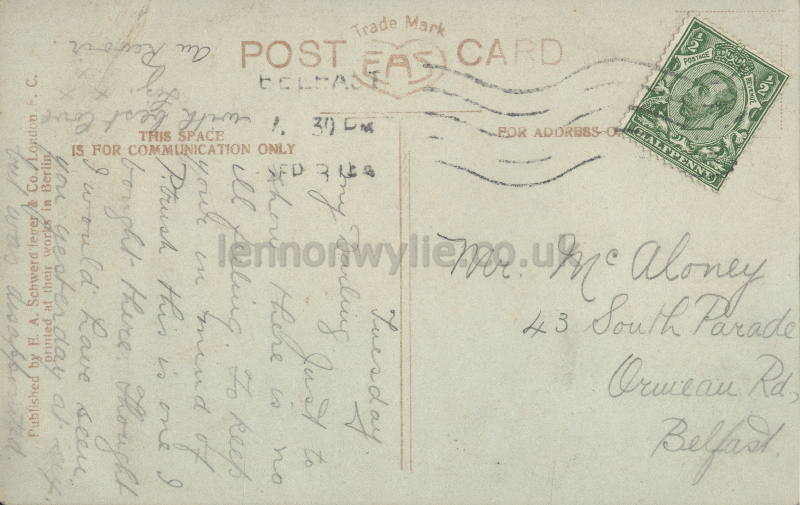 Trade Mark
POST CARD
EAS
BELFAST
THIS SPACE
IS FOR COMMUNICATION ONLY
FOR ADDRESS O
½ ½
POSTAGE REVENUE
HALFPENNY
Published by E. A. Schwerdtfeger & Co., London, E. C.
printed at their works in Berlin.
lennonwylie.co.uk
Tuesday.
My Darling Just to
show there is no
ill feeling. To keep
your in mind of
P.trush this is one I
bought there. Thought
I would have seen
you yesterday at
but was disappointed
with best love
x x
Au Revoir.
Mr. McAloney
43 South Parade
Ormeau Rd,
Belfast.